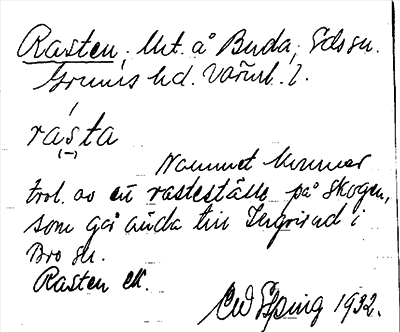 Rasten, Mt. å Buda, Eds sn.
Grums hd. Värml. l.
rasta
(–)
Namnet kommer
trol. av ett rasteställe på skogen,
som går ända till Jergsrud i
Bro sn.
Rasten ek.
CW Epping 1932.